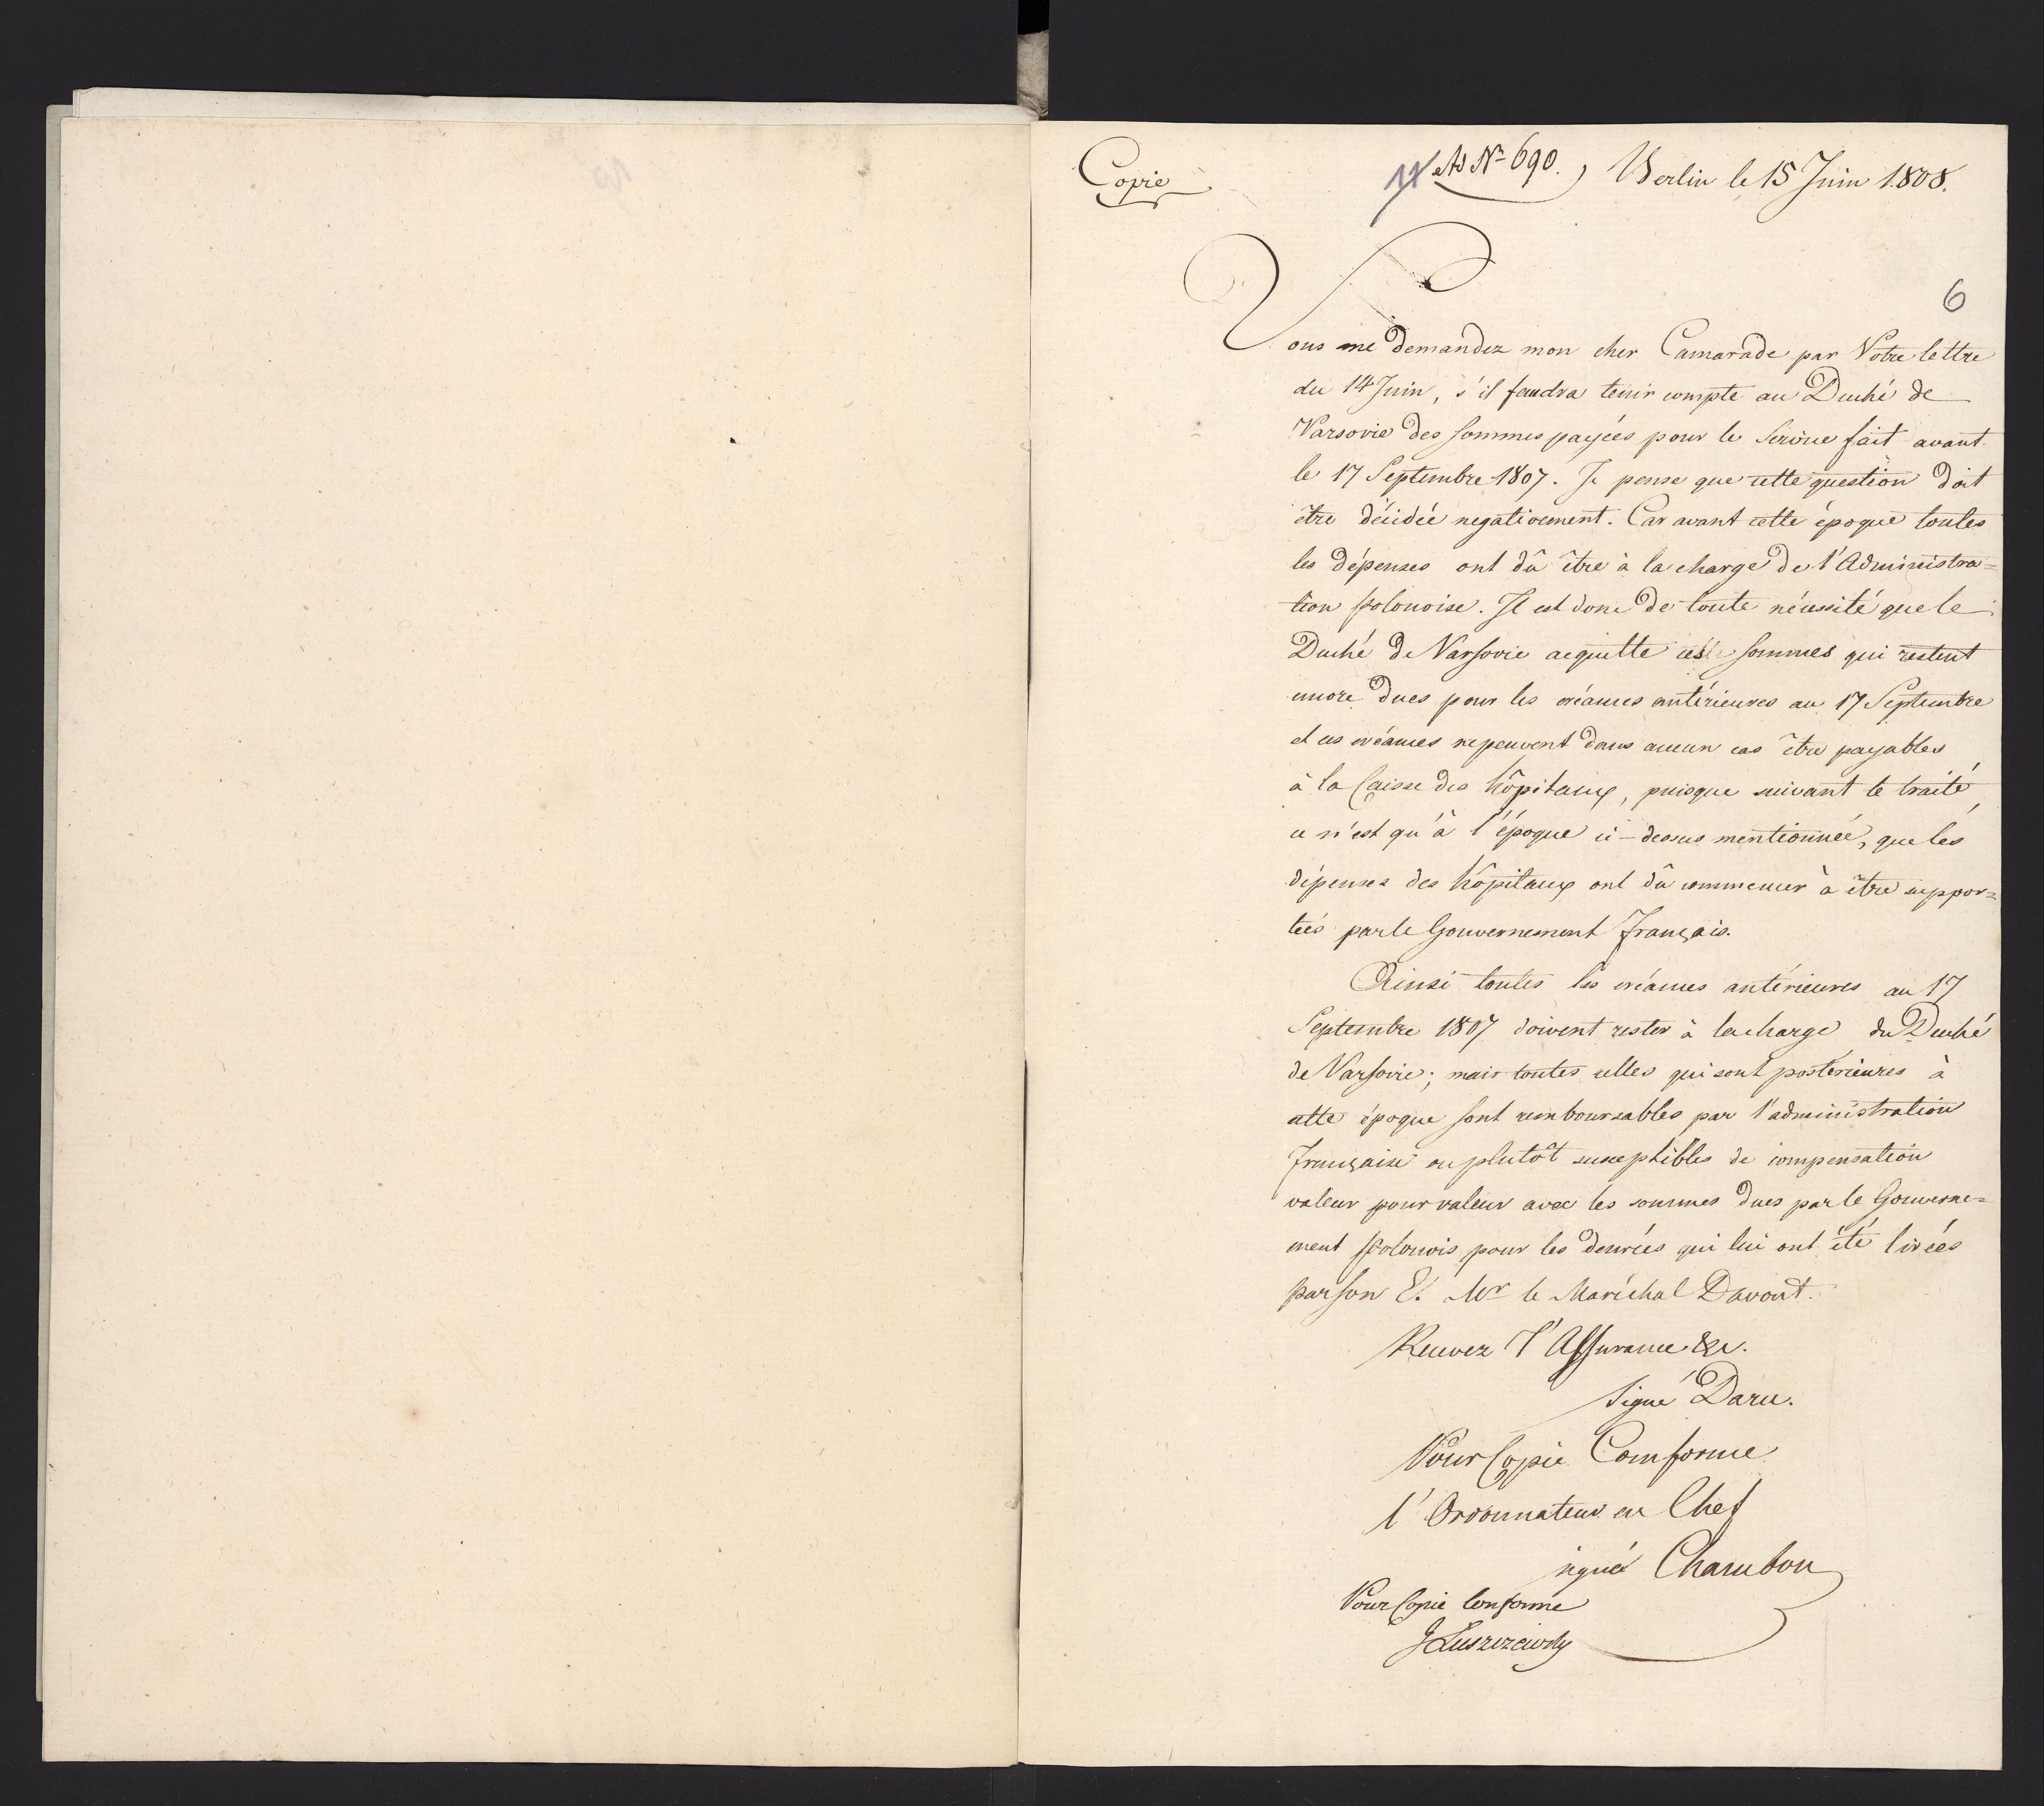 Copie
11 Ad Nr 690. Berlin le 15 Juin 1808.
6
Vous me demandez mon cher Camarade par Votre lettre
du 14 Juin, s'il faudra tenir compte au Duché de
Varsovie des sommes payées pour le Service fait avant
le 17 Septembre 1807. Je pense que cette question doit
être décidée negativement. Car avant cette époque toutes
les dépenses ont dû être à la charge de l'Administra=
tion polonoise. Il est donc de toute nécessité que le
Duché de Varsovie acquitte les sommes qui restent
encore dues pour les créances antérieures au 17 Septembre
et ces créances ne peuvent dans aucun cas être payables
à la Caisse des hôpitaux, puisque suivant le traité,
ce n'est qu'à l'époque ci-dessus mentionnée, que les
dépenses des hôpitaux ont dû commencer à être suppor=
tées par le Gouvernement Français.
Ainsi toutes les créances antérieures au 17
Septembre 1807 doivent rester à la charge du Duché
de Varsovie; mais toutes celles qui sont postérieures à
cette époque sont remboursables par l'administration
Française ou plutôt susceptibles de compensation
valeur pour valeur avec les sommes dues par le Gouverne=
ment polonois pour les denrées qui lui ont été livrées
par son E. Mr le Maréchal Davout.
Recevez l'Assurance &c.
Signé Daru.
Pour Copie Comforme
l'Ordonnateur en Chef
signé Chambon
Pour Copie Conforme